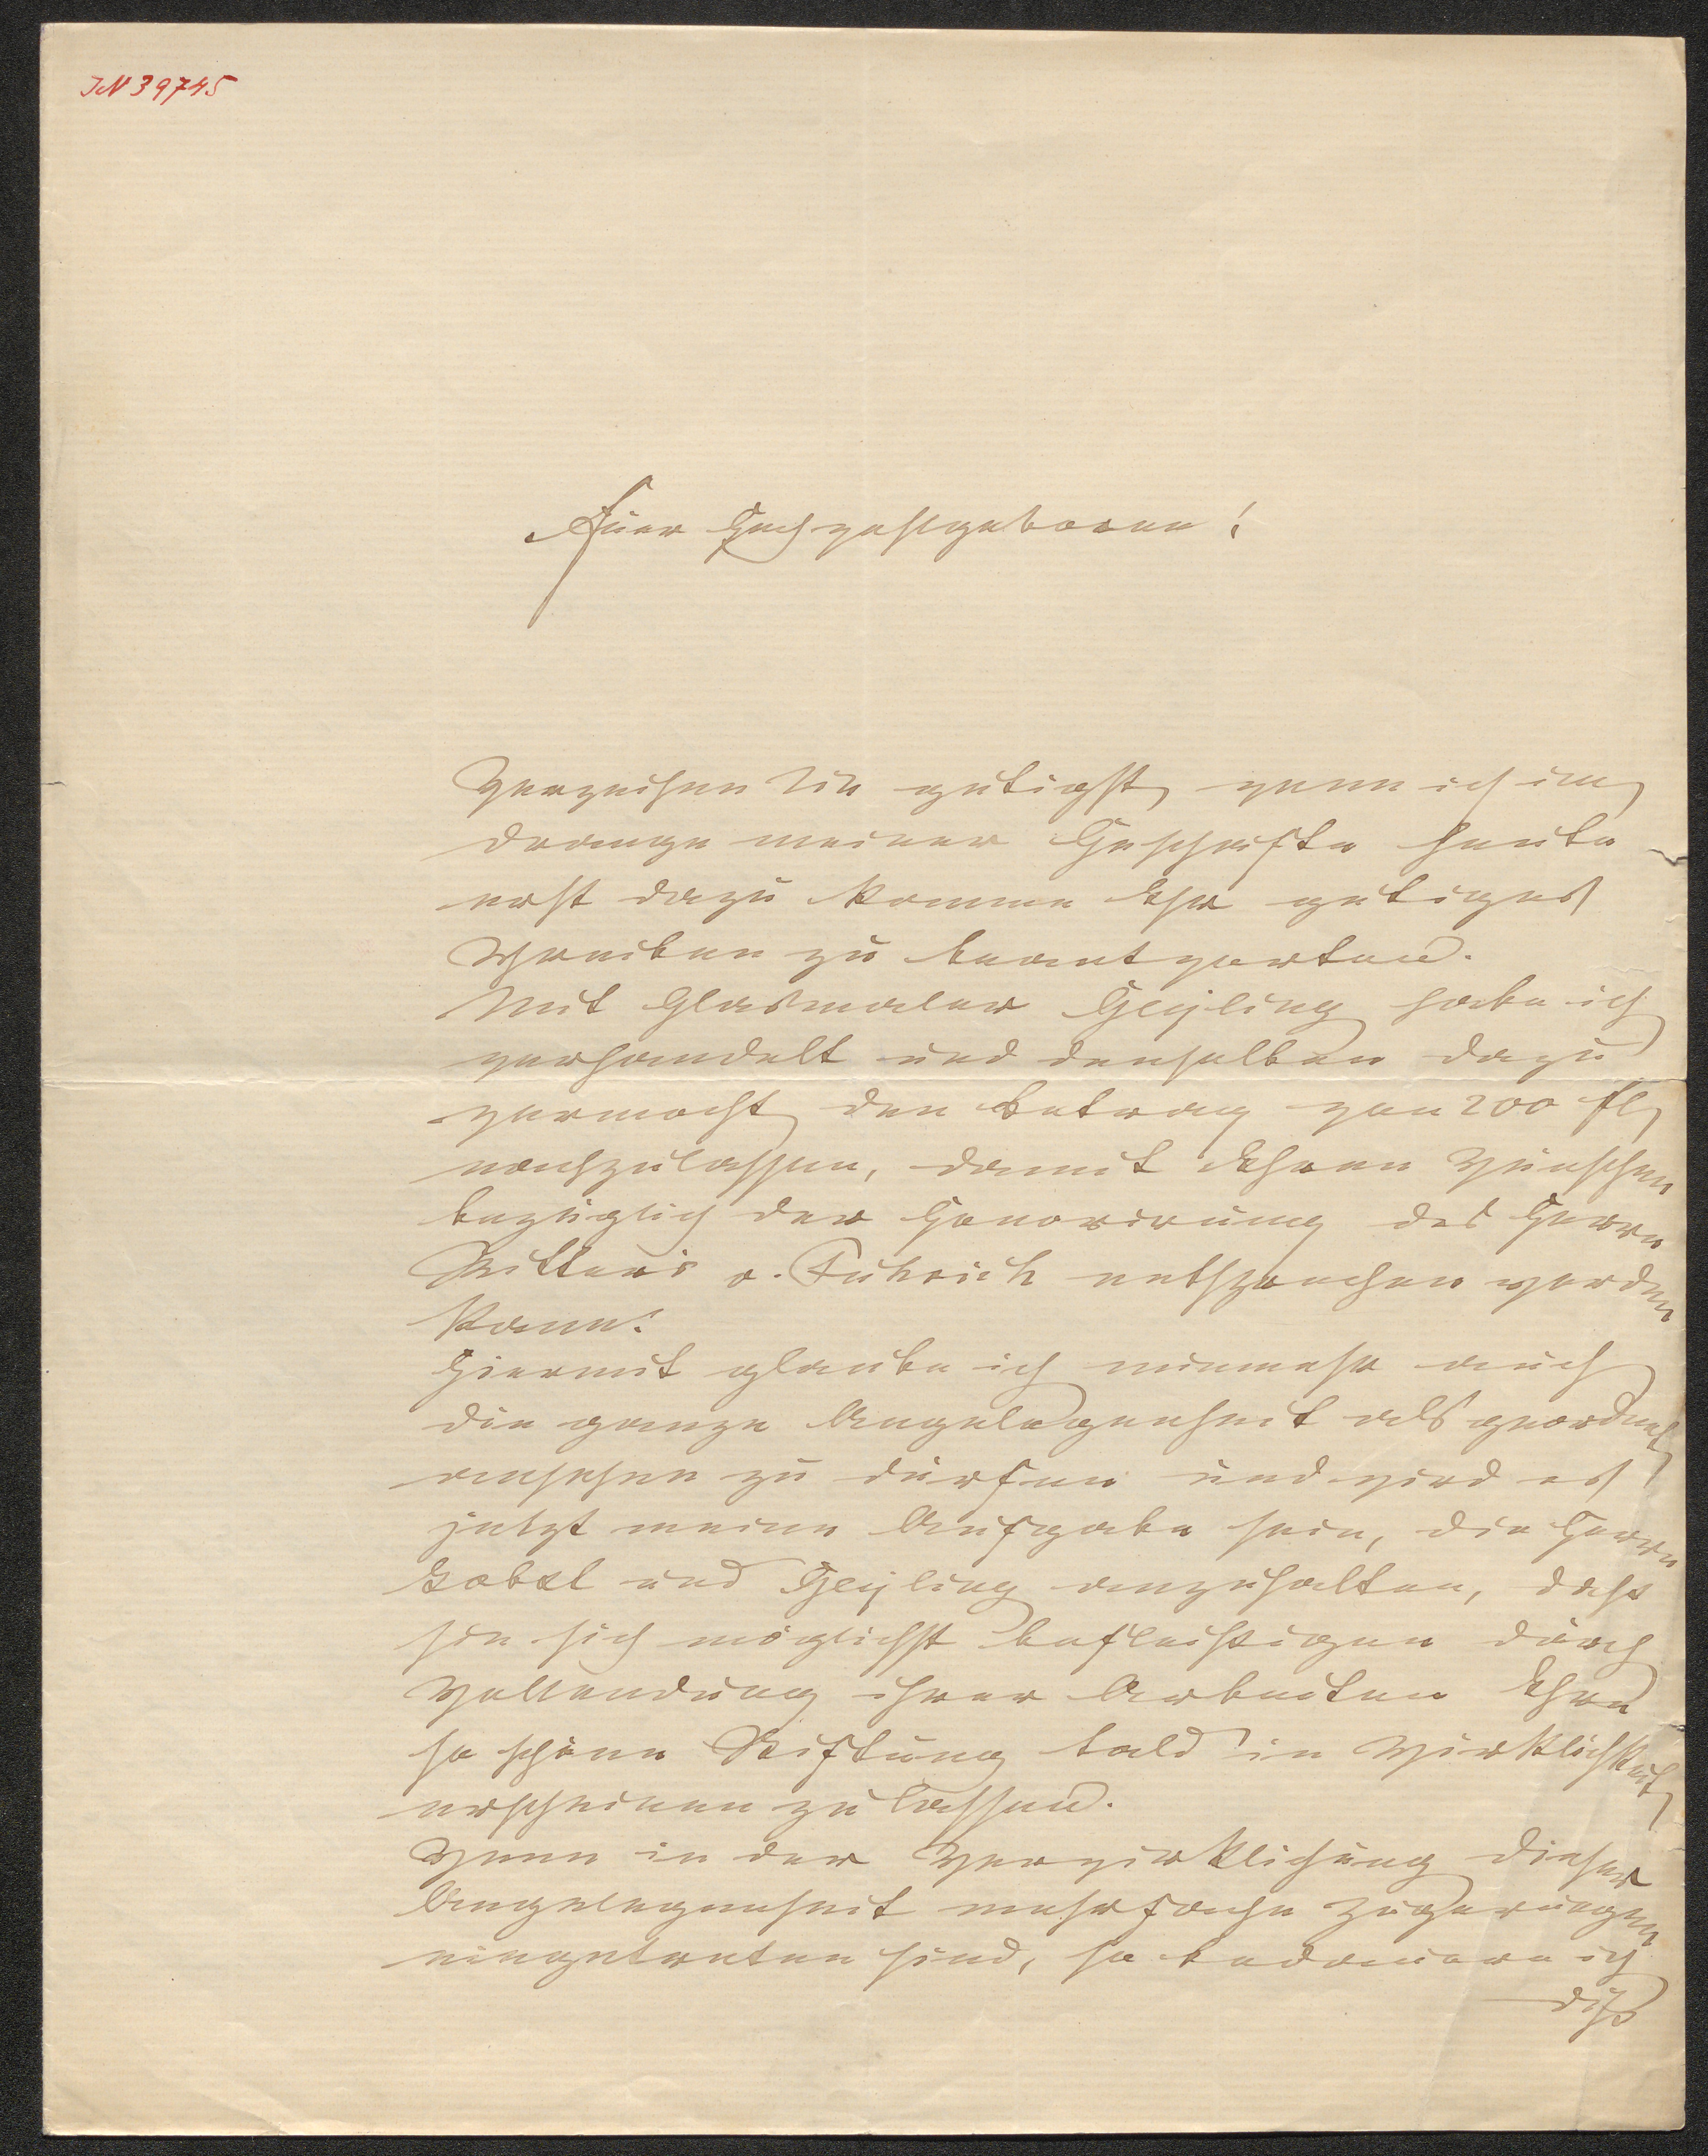 IN 39745
Euer Hochwohlgeboren!
Verzeihen Sie gütigst, wenn ich im
Drange meiner Geschäfte heute
erst dazu komme Ihr gütiges
Schreiben zu beantworten.
Mit Glasmaler Geyling habe ich
verhandelt und denselben dazu
vermocht, den Betrag von 200 fl,
nachzulassen, damit Ihren Wünschen
bezüglich der Honorirung des Herrn
Ritters v. Führich entsprochen werden
kann.
Hiermit glaube ich nunmehr auch
die ganze Angelegenheit als geordnet
ansehen zu dürfen und wird es
jetzt meine Aufgabe sein, die Herrn
Jobst und Geyling anzuhalten, daß
sie sich möglichst befleißigen durch
Vollendung ihrer Arbeiten Ihre
so schöne Stiftung bald in Wirklichkeit
erscheinen zu lassen.
Wenn in der Verwirklichung dieser
Angelegenheit mehrfache Zögerungen
eingetreten sind, so bedauere ich
diß